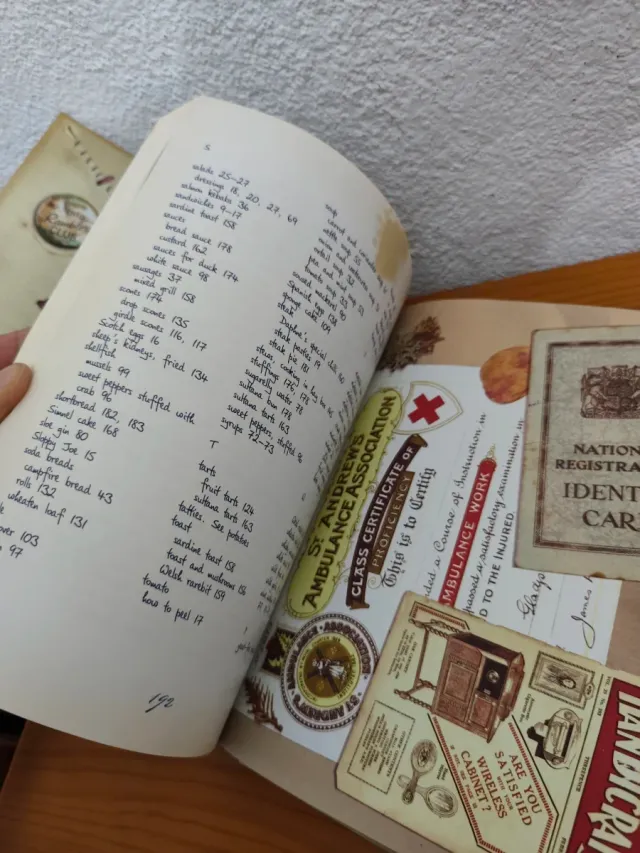 S
salads 25–27
dressings 18, 20, 27, 69
salami kebabs 36
sandwiches 9–17
sardine toast 158
sauces
bread sauce 178
custard 162
sauces for duck 174
white sauce 98
sausages 37
mixed grill 158
scones 174
drop scones 135
girdle scones 116, 117
Scotch eggs 16
sheep's kidneys, fried 134
shellfish
mussels 99
sweet peppers stuffed with
crab 96
shortbread 182, 183
Simnel cake 168
sloe gin 80
Sloppy Joe 15
soda breads
campfire bread 43
rolls 132
wheaten loaf 131
103
97
soup
Spanish egg 138
sponge cake 109
steak
Daphne's special
steak pasties 19
steak pie 181
stews, cooking in hay box
stuffing 176, 178
sugarelly water 78
sultana bun 174
sultana tarts 163
sweet peppers, stuffed 96
syrups 72–73
T
tarts
fruit tarts 124
sultana tarts 163
tatties. See potatoes
toast
sardine toast 158
toast and mushrooms 156
Welsh rarebit 159
tomato
how to peel 17
192
ST ANDREW'S
AMBULANCE ASSOCIATION
CLASS CERTIFICATE OF
PROFICIENCY
This is to Certify
a Course of Instruction in
AMBULANCE WORK
passed a satisfactory examination in
D TO THE INJURED.
James
NATION
REGISTRA
IDENT
CAR
ARE YOU
SATISFIED
WITH YOUR
WIRELESS
CABINET?
HANDICRA
CLUB